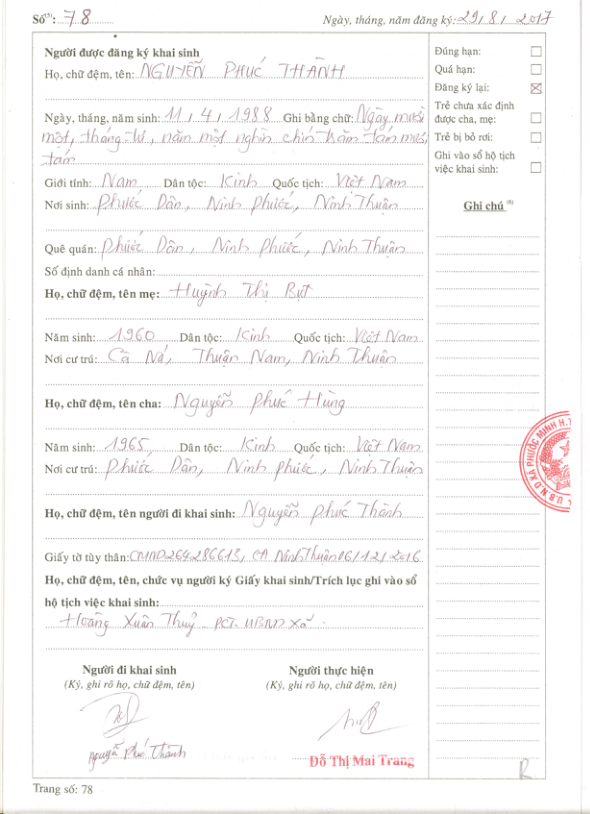 Số⁽⁵⁾: 78 Ngày, tháng, năm đăng ký: 29/8/2017
Người được đăng ký khai sinh
Họ, chữ đệm, tên: NGUYỄN PHÚC THÀNH
Ngày, tháng, năm sinh: 11/4/1988 Ghi bằng chữ: Ngày mười
một, tháng tư, năm một nghìn chín trăm tám mươi
tám
Giới tính: Nam Dân tộc: Kinh Quốc tịch: Việt Nam
Nơi sinh: Phước Dân, Ninh Phước, Ninh Thuận
Quê quán: Phước Dân, Ninh Phước, Ninh Thuận
Số định danh cá nhân:
Họ, chữ đệm, tên mẹ: Huỳnh Thị Bụt
Năm sinh: 1960 Dân tộc: Kinh Quốc tịch: Việt Nam
Nơi cư trú: Cà Ná, Thuận Nam, Ninh Thuận
Họ, chữ đệm, tên cha: Nguyễn Phúc Hùng
Năm sinh: 1965 Dân tộc: Kinh Quốc tịch: Việt Nam
Nơi cư trú: Phước Dân, Ninh Phước, Ninh Thuận
Họ, chữ đệm, tên người đi khai sinh: Nguyễn Phúc Thành
Giấy tờ tùy thân: CMND 264286613, CA Ninh Thuận 06/12/2016
Họ, chữ đệm, tên, chức vụ người ký Giấy khai sinh/Trích lục ghi vào sổ
hộ tịch việc khai sinh:
Hoàng Xuân Thuỷ - PCT. UBND Xã
Người đi khai sinh
(Ký, ghi rõ họ, chữ đệm, tên)
Nguyễn Phúc Thành
Người thực hiện
(Ký, ghi rõ họ, chữ đệm, tên)
Đỗ Thị Mai Trang
Đúng hạn:
Quá hạn:
Đăng ký lại:
Trẻ chưa xác định
được cha, mẹ:
Trẻ bị bỏ rơi:
Ghi vào sổ hộ tịch
việc khai sinh:
Ghi chú ⁽⁶⁾
U.B.N.D XÃ PHƯỚC MINH H.T
R
Trang số: 78